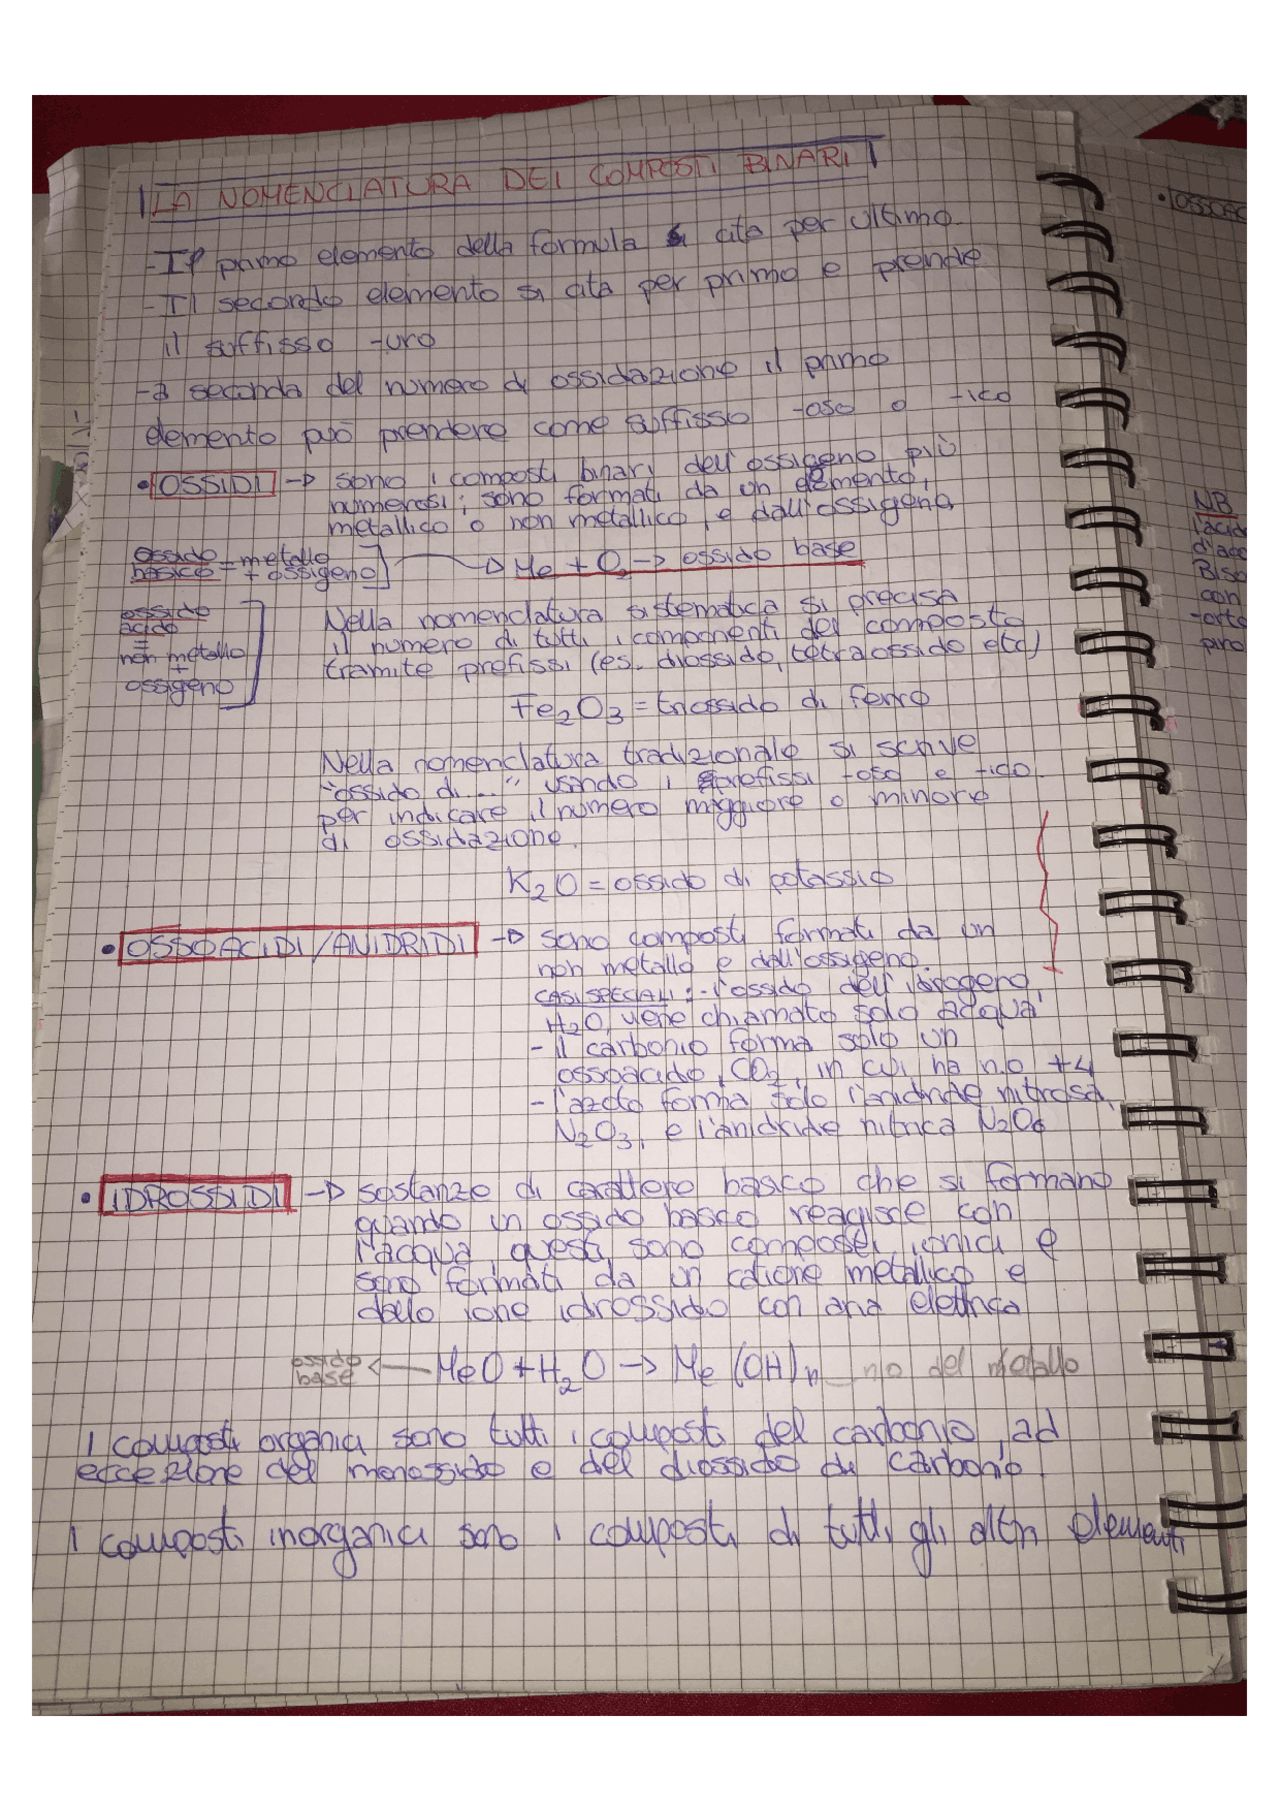 LA NOMENCLATURA DEI COMPOSTI BINARI
- Il primo elemento della formula si cita per ultimo
- Il secondo elemento si cita per primo e prende
il suffisso -uro
- a seconda del numero di ossidazione il primo
elemento può prendere come suffisso -oso o -ico
• OSSIDI → sono i composti binari dell'ossigeno più
numerosi; sono formati da un elemento,
metallico o non metallico, e dall'ossigeno
ossido basico = metallo + ossigeno
Me + O2 → ossido base
ossido
acido
=
non metallo
+
ossigeno
Nella nomenclatura sistematica si precisa
il numero di tutti i componenti del composto
tramite prefissi (es. diossido, tetraossido etc)
Fe2O3 = triossido di ferro
Nella nomenclatura tradizionale si scrive
"ossido di..." usando i prefissi -oso e -ico
per indicare il numero maggiore o minore
di ossidazione.
K2O = ossido di potassio
• OSSOACIDI/ANIDRIDI → sono composti formati da un
non metallo e dall'ossigeno.
CASI SPECIALI: - l'ossido dell'idrogeno,
H2O, viene chiamato solo acqua
- il carbonio forma solo un
ossoacido, CO2, in cui ha n.o +4
- l'azoto forma solo l'anidride nitrosa,
N2O3, e l'anidride nitrica N2O6
• IDROSSIDI → sostanze di carattere basico che si formano
quando un ossido basico reagisce con
l'acqua, questi sono composti ionici e
sono formati da un catione metallico e
dallo ione idrossido con elettrica
ossido
base
← MeO + H2O → Me (OH)n no del metallo
I composti organici sono tutti i composti del carbonio, ad
eccezione del monossido e del diossido di carbonio.
I composti inorganici sono i composti di tutti gli altri elementi
• OSSOAC
NB
l'acid
d'acq
Biso
con
-orto
piro